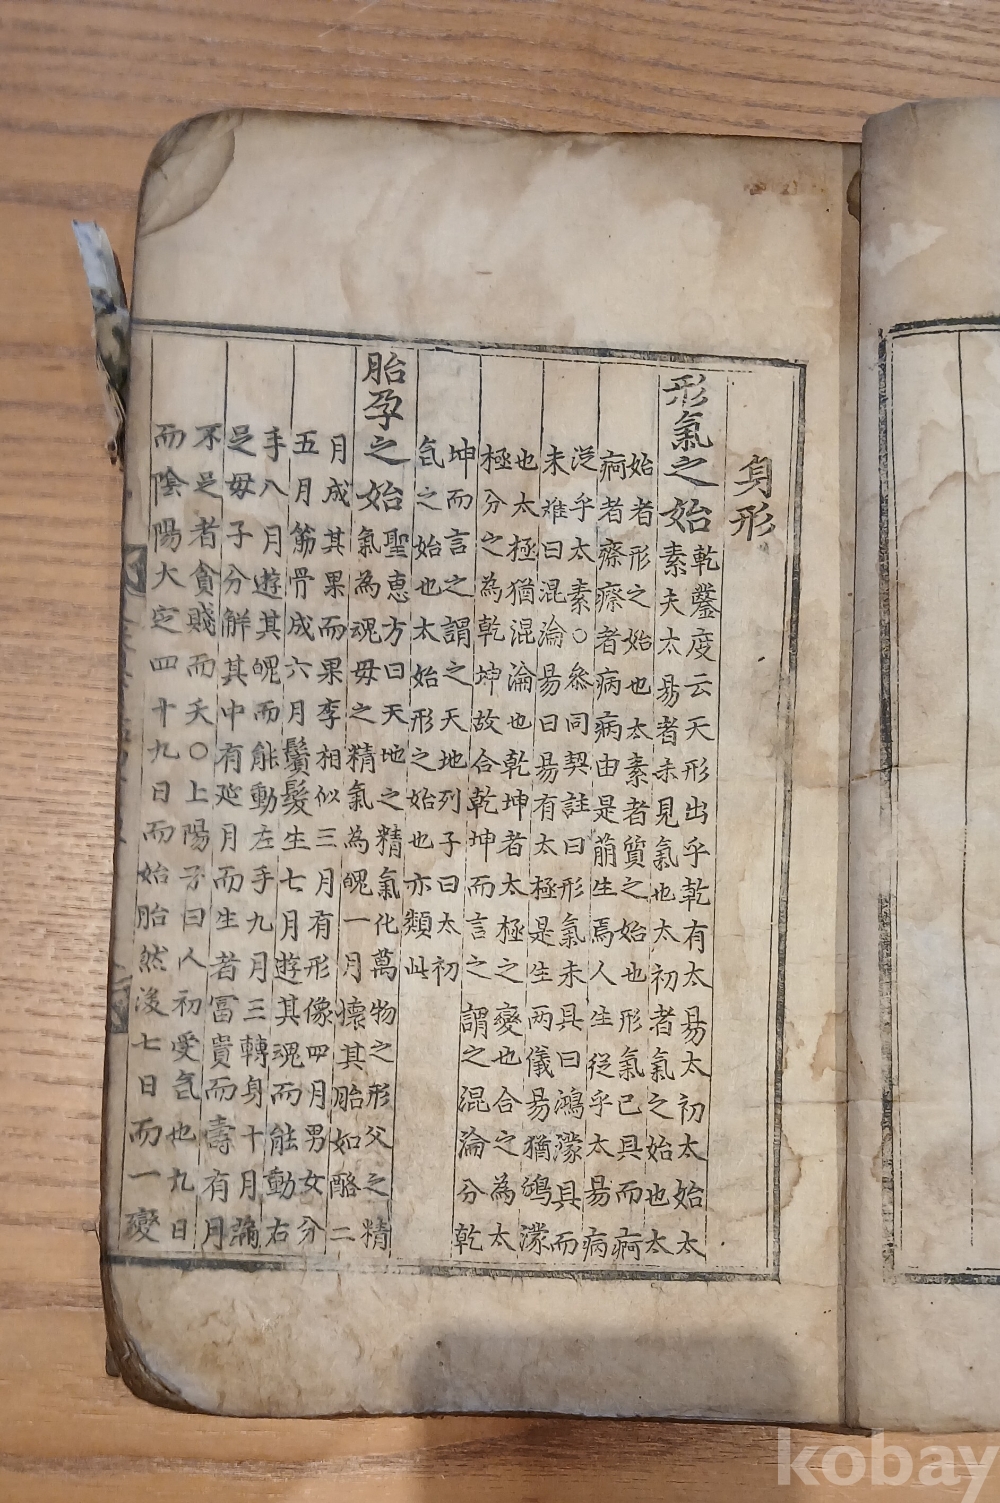 身形
形氣之始
乾鑿度云天形出乎乾有太易太初太始太
素夫太易者未見氣也太初者氣之始也太
始者形之始也太素者質之始也形氣已具而痾
痾者瘵瘵者病病由是萌生焉人生從乎太易病
從乎太素○叅同契註曰形氣未具曰鴻濛具而
未难曰混淪易曰易有太極是生两儀易猶鴻濛
也太極猶混淪也乾坤者太極之變也合之為太
極分之為乾坤故合乾坤而言之謂之混淪分乾
坤而言之謂之天地列子曰太初
气之始也太始形之始也亦類此
胎孕之始
聖惠方曰天地之精氣化萬物之形父之精
氣為魂毋之精氣為魄一月懷其胎如酪二
月成其果而果李相似三月有形像四月男女分
五月筋骨成六月鬢髮生七月遊其魂而能動右
手八月遊其魄而能動左手九月三轉身十月滿
足毋子分觧其中有延月而生者冨貴而壽有月
不足者貪賤而夭○上陽子曰人初受气也九日
而陰陽大定四十九日而始胎然後七日而一變
kobay